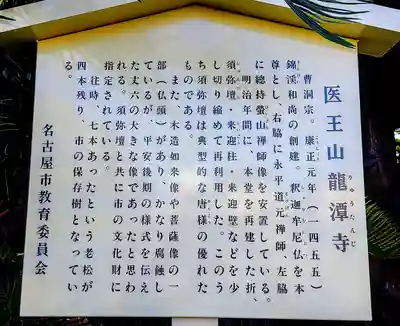 医王山龍潭寺
りゅうたんじ
曹洞宗。康正元年(一四五五)
錦渓和尚の創建。釈迦牟尼仏を本
尊とし、右脇に永平道元禅師、左脇
に總持螢山禅師像を安置している。
明治年間に、本堂を再建した折、
須弥壇・来迎柱・来迎壁などを少
し切り縮めて再利用した。このう
ち須弥壇は典型的な唐様の優れた
ものである。
また、木造如来像や菩薩像の一
部(仏頭)があり、かなり腐蝕し
ているが、平安後期の様式を伝え
た丈六の大きな像であったと思わ
れる。須弥壇と共に市の文化財に
指定されている。
往時、七本あったという老松が
四本残り、市の保存樹となってい
る。
名古屋市教育委員会